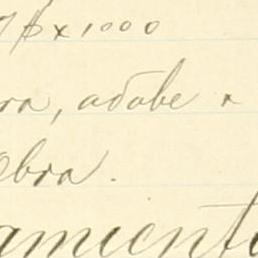 x 1000
ra, adobe
Obra.
amient